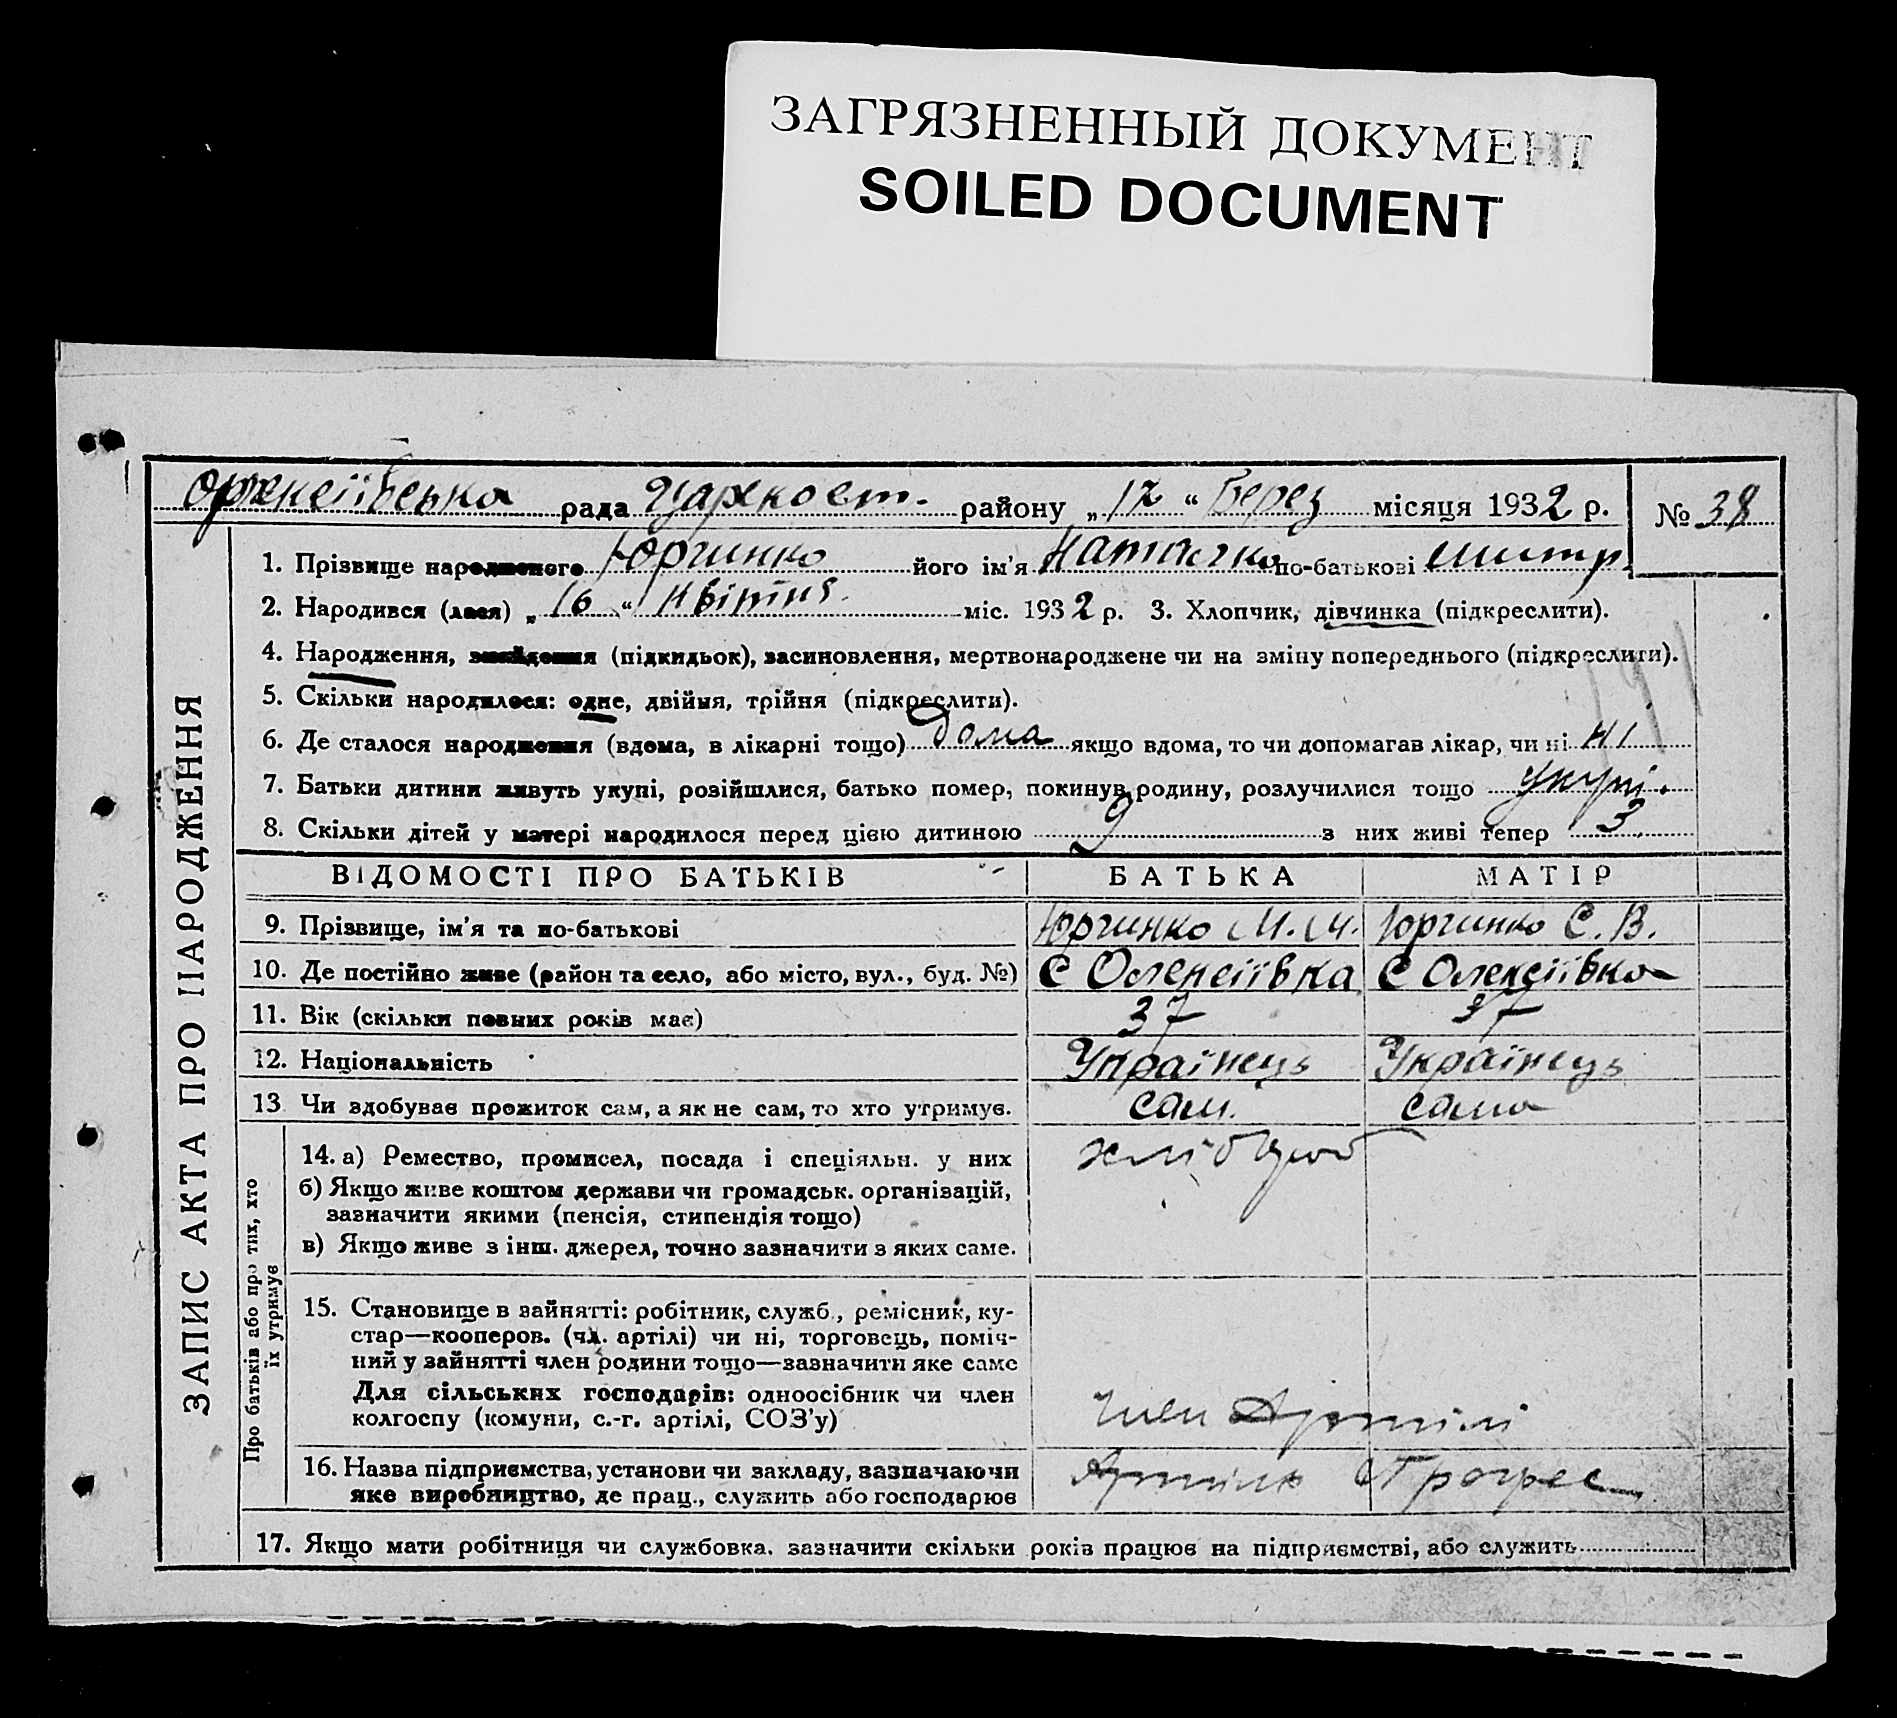 ЗАГРЯЗНЕННЫЙ ДОКУМЕНТ
SOILED DOCUMENT
рада району „17“ Берез місяця 1932 р. № 38
ЗАПИС АКТА ПРО НАРОДЖЕННЯ
1. Прізвище народженого Юрчинко його ім'я по-батькові
2. Народився (лася) „16“ Квітня міс. 1932 р. 3. Хлопчик, дівчинка (підкреслити).
4. Народження, знайдення (підкидьок), засиновлення, мертвонароджене чи на зміну попереднього (підкреслити).
5. Скільки народилося: одне, двійня, трійня (підкреслити).
6. Де сталося народження (вдома, в лікарні тощо) Дома якщо вдома, то чи допомагав лікар, чи ні ні
7. Батьки дитини живуть укупі, розійшлися, батько помер, покинув родину, розлучилися тощо укупі.
8. Скільки дітей у матері народилося перед цією дитиною 9 з них живі тепер 3
ВІДОМОСТІ ПРО БАТЬКІВ БАТЬКА МАТІР
9. Прізвище, ім'я та по-батькові Юрчинко М. М. Юрчинко Є. В.
10. Де постійно живе (район та село, або місто, вул., буд. №) С Олексіївка С Олексіївка
11. Вік (скільки повних років має) 37 37
12. Національність Українець Українець
13 Чи здобуває прожиток сам, а як не сам, то хто утримує. сам. сама
Про батьків або про тих, хто
їх утримує
14. а) Ремество, промисел, посада і спеціяльн. у них хлібороб
б) Якщо живе коштом держави чи громадськ. організацій,
зазначити якими (пенсія, стипендія тощо)
в) Якщо живе з інш. джерел, точно зазначити з яких саме.
15. Становище в зайнятті: робітник, служб., ремісник, ку-
стар—кооперов. (чл. артілі) чи ні, торговець, поміч-
ний у зайнятті член родини тощо—зазначити яке саме
Для сільських господарів: одноосібник чи член
колгоспу (комуни, с.-г. артілі, СОЗ'у) член Артілі
16. Назва підприємства, установи чи закладу, зазначаючи Артиль Прогрес
яке виробництво, де прац., служить або господарює
17. Якщо мати робітниця чи службовка. зазначити скільки років працює на підприємстві, або служить